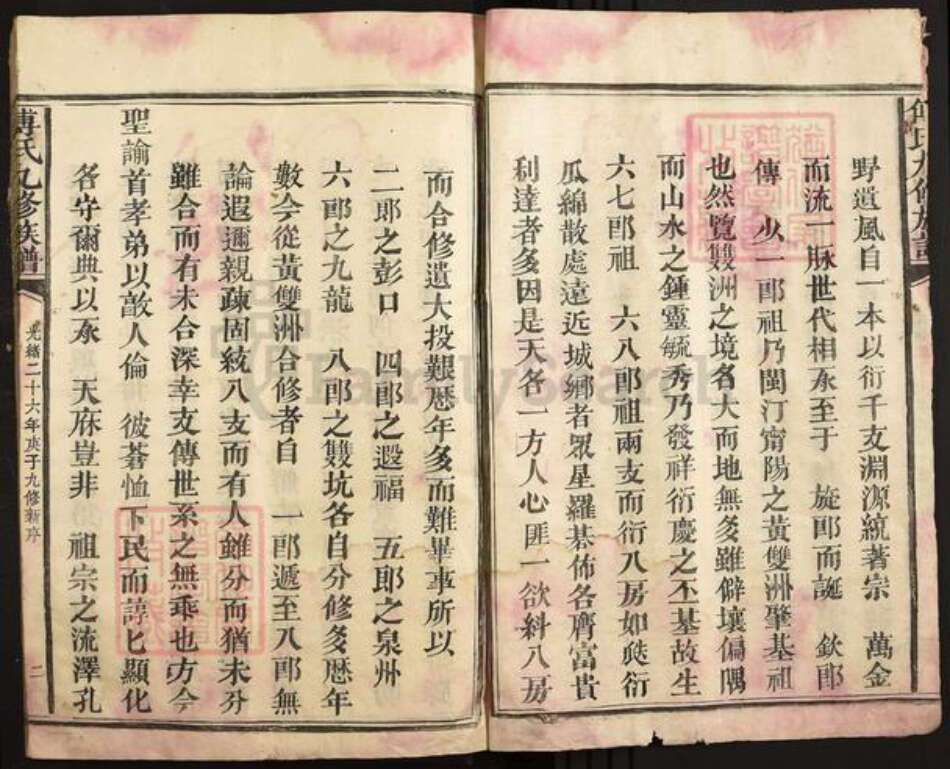 野遺風自一本以衍千支淵源統著宗　萬金
而流一脉世代相承至于　旋郎而誕　欽郎
傳　少一郎祖乃閩汀甯陽之黃雙洲肇基祖
也然覽雙洲之境各大而地無多雖僻壤偏隅
而山水之鍾靈毓秀乃發祥衍慶之丕基故生
六七郎祖　六八郎祖兩支而衍八房如瓞衍
瓜綿散處遠近城鄉者眾星羅棊佈各膺富貴
利達者多因是天各一方人心匪一欲糾八房
而合修遺大投艱歷年多而難畢事所以
二郎之彭口　四郎之遐福　五郎之泉州
六郎之九龍　八郎之雙坑各自分修多歷年
數今從黃雙洲合修者自　一郎遞至八郎無
論遐邇親疎固統八支而有人雖分而猶未分
雖合而有未合深幸支傳世系之無乖也方今
聖諭首孝弟以敦人倫　彼蒼恤下民而諄匕顯化
各守爾典以承　天庥豈非　祖宗之流澤孔
傅氏九修族譜
光緒二十六年庚子九修新序
二
FamilySearch